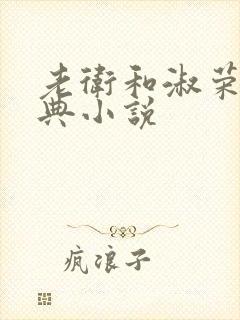 老衛和淑荣
典小說
疯浪子